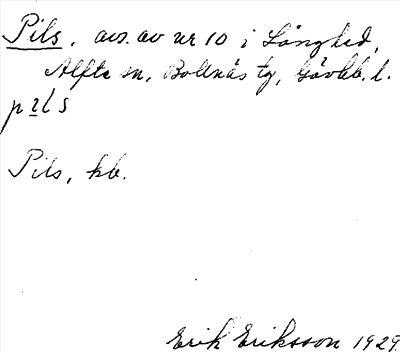 Pils, avs. av nr 10 i Långhed,
Alfta sn, Bollnäs tg, Gävleb. l.
pɪls
Pils, kb.
Erik Eriksson 1929.